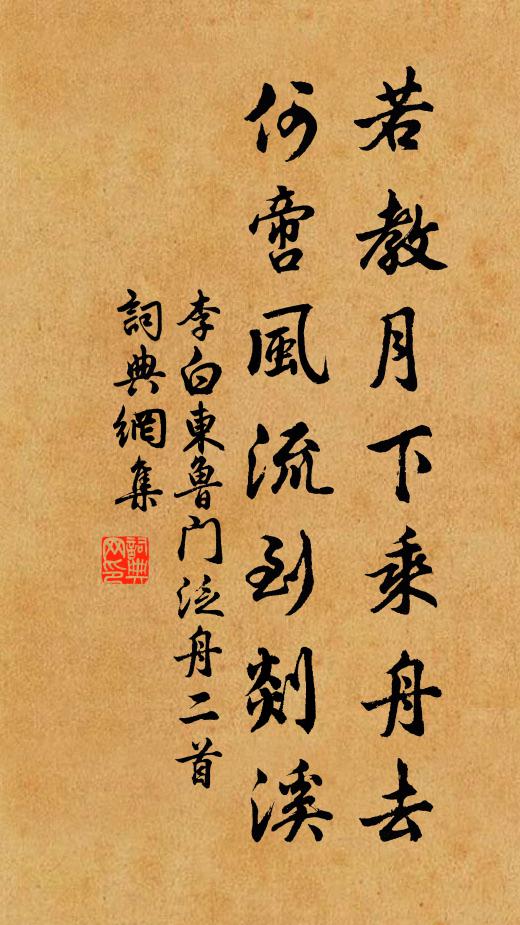 若教月下乘舟去
何啻風流到剡溪
李白東魯門泛舟二首
詞典網集
詞典网印